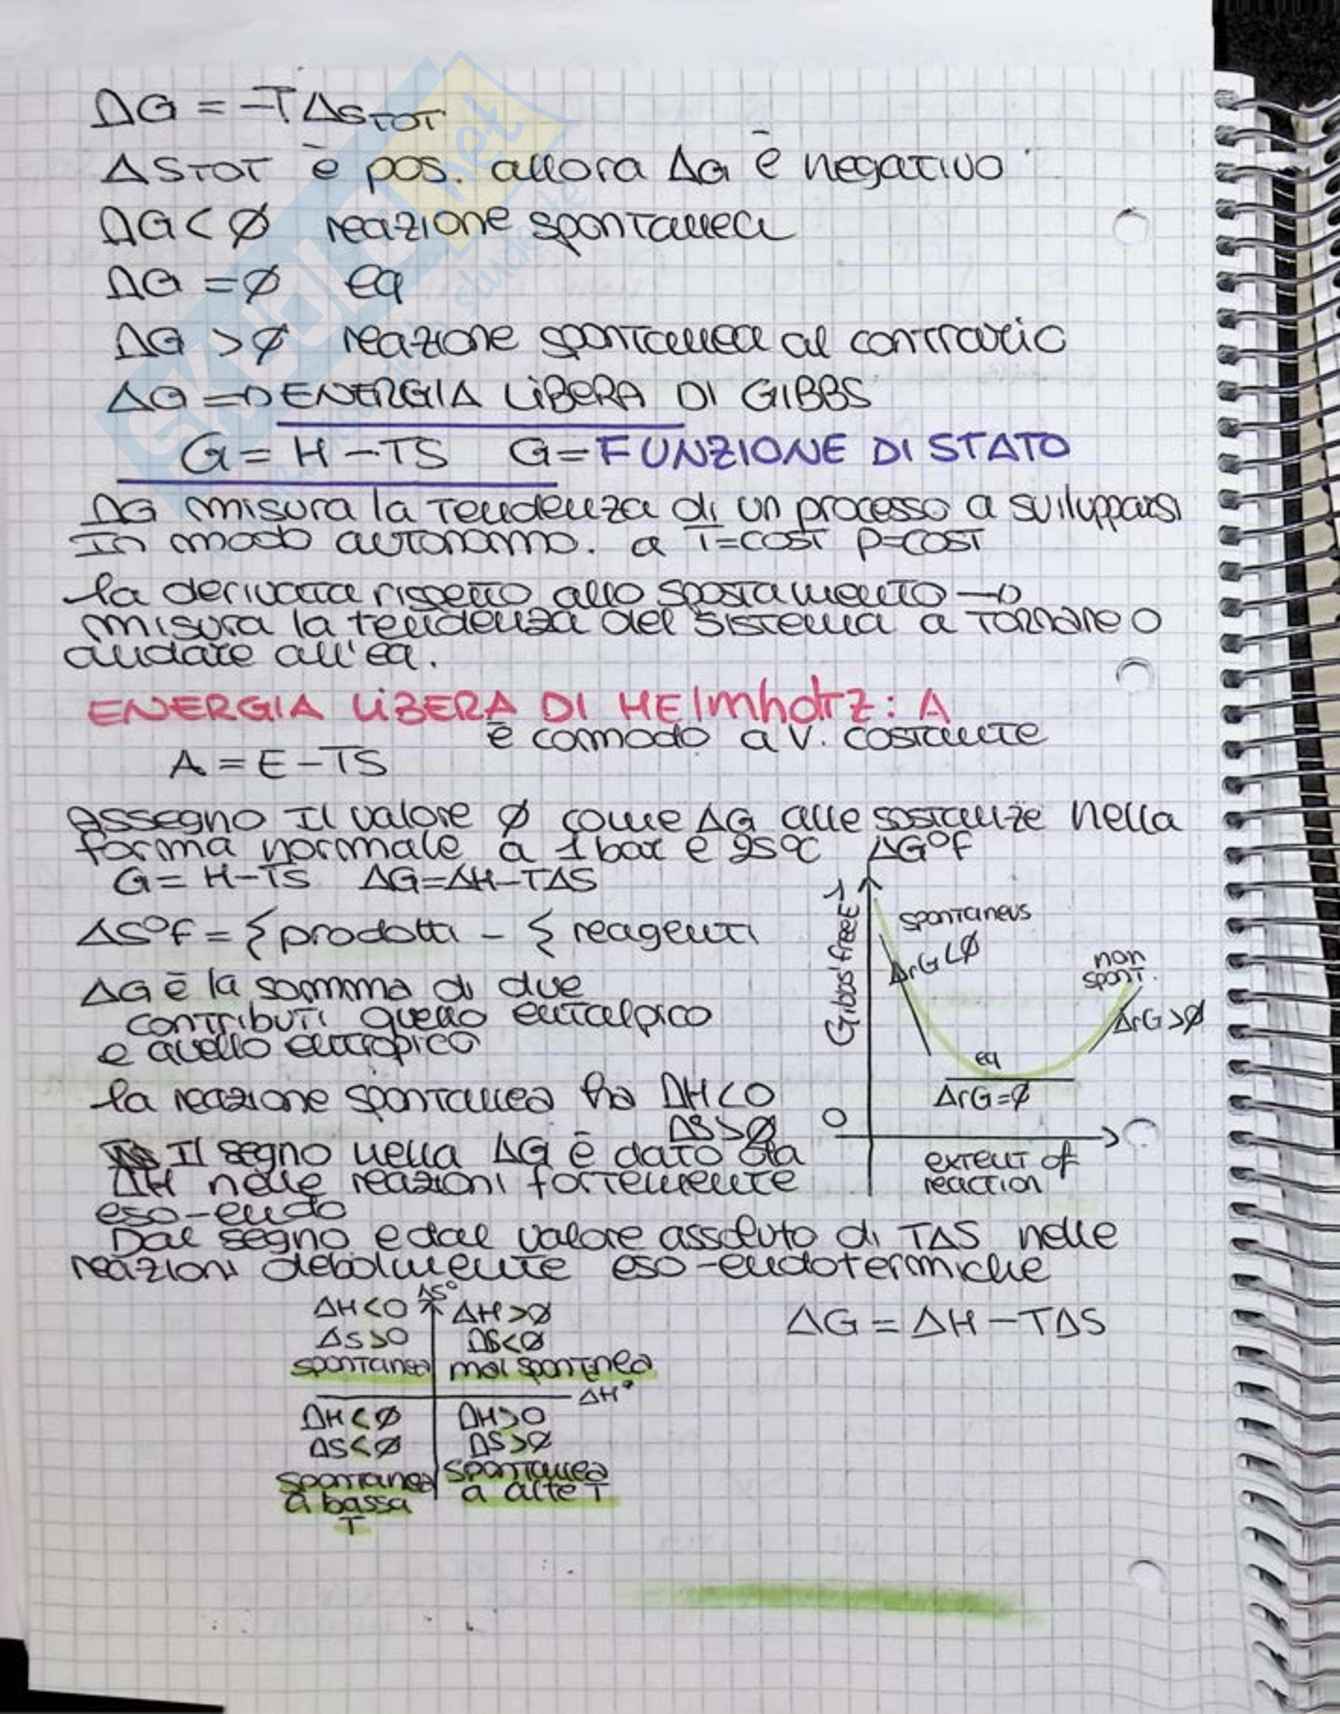 ΔG = -TΔSTOT
ΔSTOT è pos. allora ΔG è negativo
ΔG < Ø reazione spontanea
ΔG = Ø eq
ΔG > Ø reazione spontanea al contrario
ΔG → ENERGIA LIBERA DI GIBBS
G = H - TS G = FUNZIONE DI STATO
ΔG misura la tendenza di un processo a svilupparsi
In modo autonomo. a T=cost P=cost
la derivata rispetto allo spostamento →
misura la tendenza del sistema a tornare o
andare all'eq.
ENERGIA LIBERA DI HElmholtz: A
è comodo a V. costante
A = E - TS
Assegno Il valore Ø come ΔG alle sostanze nella
forma normale a 1 bar e 25°C ΔG°f
G = H-TS ΔG=ΔH-TΔS
ΔS°f = ξ prodotti - ξ reagenti
ΔG è la somma di due
contributi quello entalpico
e quello entropico
la reazione spontanea ha ΔH<0
ΔS>Ø
Il segno nella ΔG è dato da
ΔH nelle reazioni fortemente
eso-endo
Dal segno e dal valore assoluto di TΔS nelle
reazioni debolmente eso-endotermiche
Gibbs' free E
spontaneus
ΔrG<Ø
non
spont.
ΔrG>Ø
eq
ΔrG=Ø
O
extent of
reaction
ΔS°
ΔH<0 ΔH>Ø
ΔS>0 ΔS<Ø
spontanea mai spontnea
ΔH°
ΔH<Ø ΔH>0
ΔS<Ø ΔS>Ø
spontanea spontanea
a bassa a alte T
T
ΔG = ΔH - TΔS